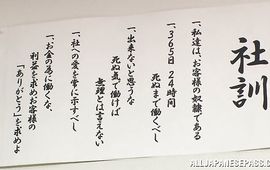 社訓
一、私達は、お客様の奴隷である
一、365日 24時間
死ぬまで働くべし
一、出来ないと思うな
死ぬ気で働けば
無理とは言えない
一、社への愛を常に示すべし
一、お金の為に働くな、
利益を求め、お客様の
「ありがとう」を求めよ
ALLJAPANESEPASS.COM